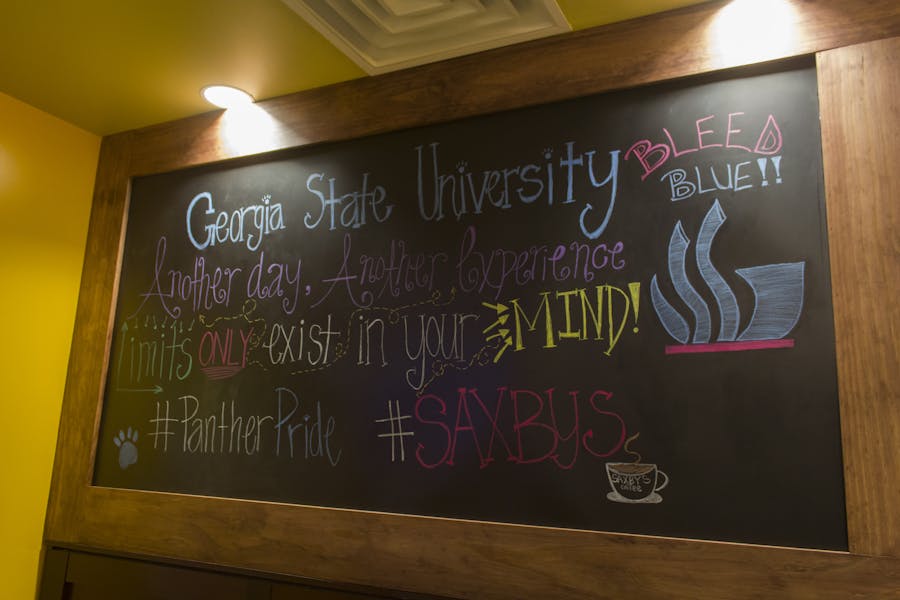 Georgia State University
BLEED
BLUE!!
Another day, Another Experience
Limits ONLY exist in your MIND!
#PantherPride #SAXBYS
SAXBYS
COFFEE